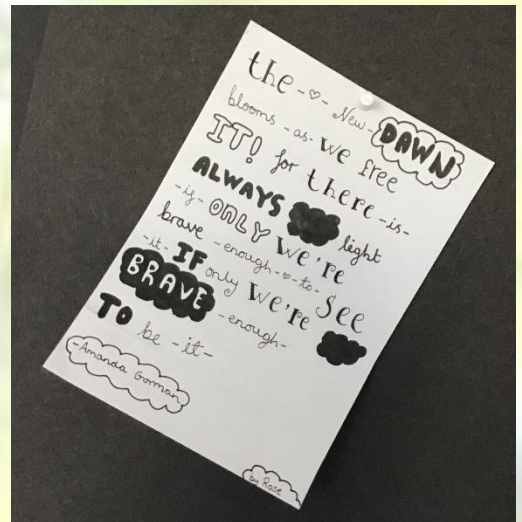 the -♡- New - DAWN
blooms - as - we free
IT! for there - is -
ALWAYS light
- if - ONLY we're
brave - enough -♡- to - see
- it - IF only we're
BRAVE - enough -
TO be - it -
- Amanda Gorman
by Rose